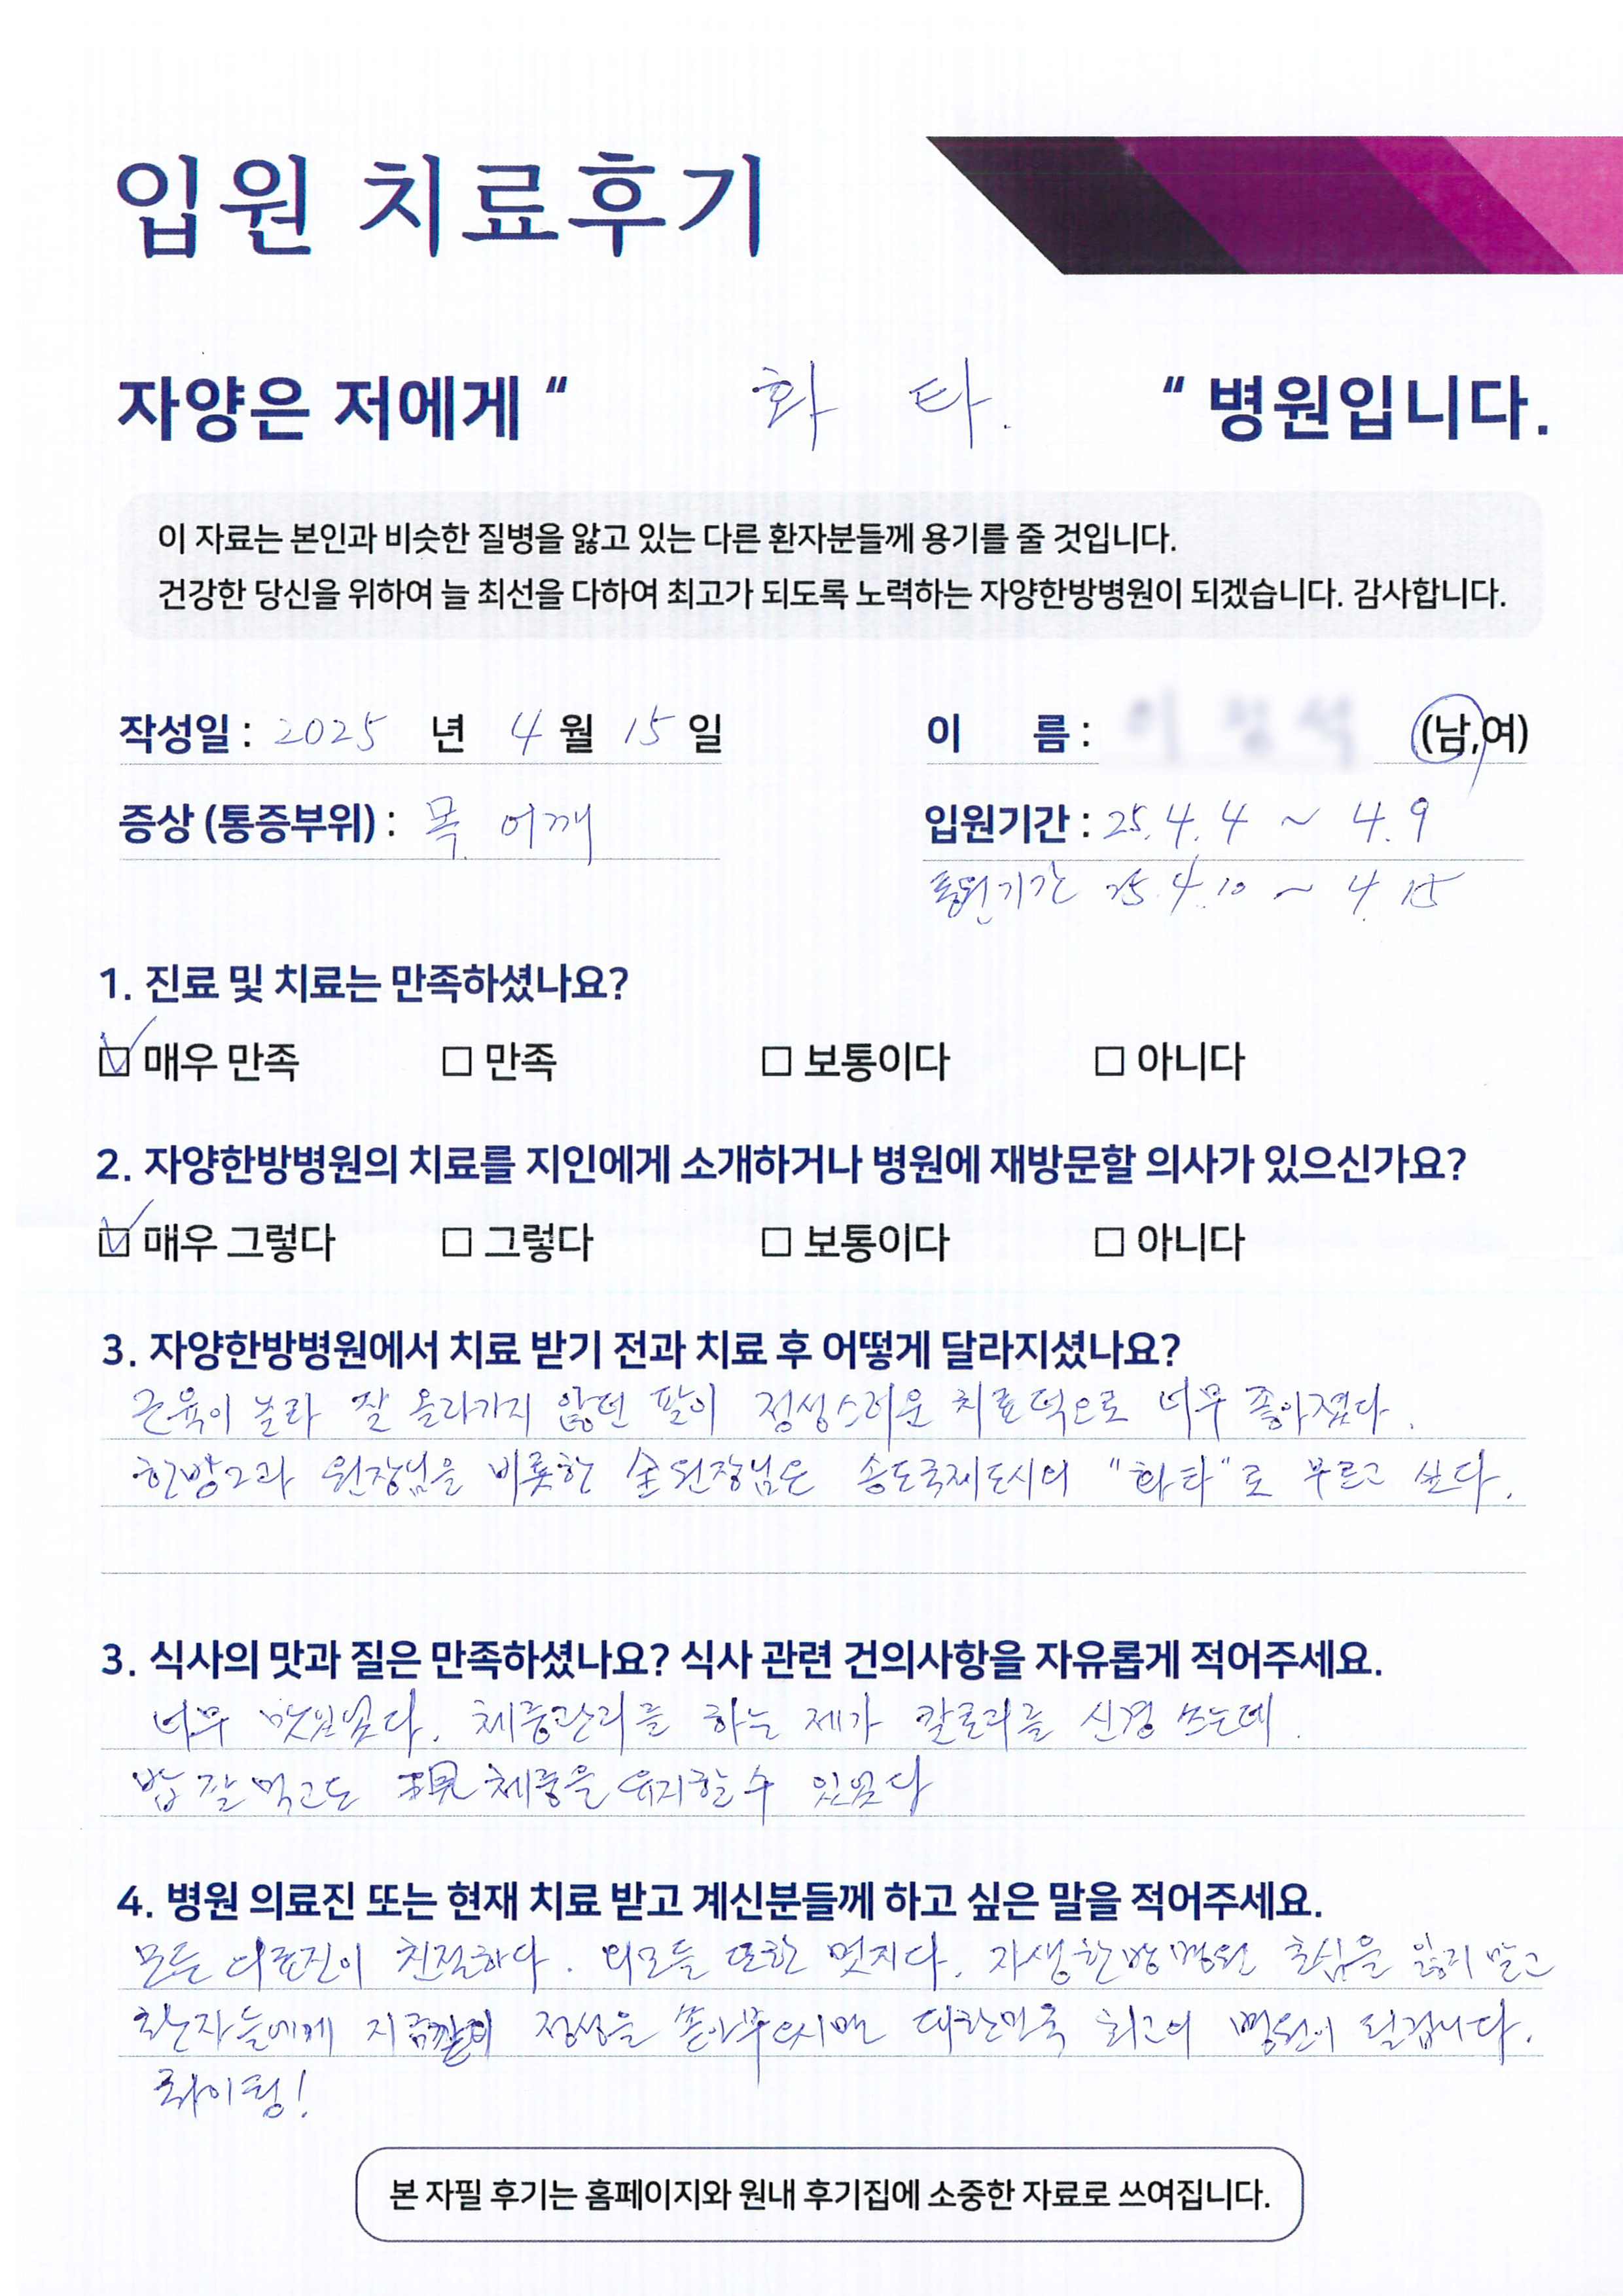 입원 치료후기
자양은 저에게 “ 화 타. “ 병원입니다.
이 자료는 본인과 비슷한 질병을 앓고 있는 다른 환자분들께 용기를 줄 것입니다.
건강한 당신을 위하여 늘 최선을 다하여 최고가 되도록 노력하는 자양한방병원이 되겠습니다. 감사합니다.
작성일 : 2025 년 4 월 15 일
이 름 : (남,여)
증상 (통증부위) : 목 어깨
입원기간 : 25. 4. 4 ~ 4. 9
통원기간 25. 4. 10 ~ 4. 15
1. 진료 및 치료는 만족하셨나요?
매우 만족 □ 만족 □ 보통이다 □ 아니다
2. 자양한방병원의 치료를 지인에게 소개하거나 병원에 재방문할 의사가 있으신가요?
매우 그렇다 □ 그렇다 □ 보통이다 □ 아니다
3. 자양한방병원에서 치료 받기 전과 치료 후 어떻게 달라지셨나요?
근육이 놀라 잘 올라가지 않던 팔이 정성스러운 치료덕으로 너무 좋아졌다.
한방2과 원장님을 비롯한 全원장님은 송도국제도시의 "화타"로 부르고 싶다.
3. 식사의 맛과 질은 만족하셨나요? 식사 관련 건의사항을 자유롭게 적어주세요.
너무 맛있었다. 체중관리를 하는 제가 칼로리를 신경 쓰는데.
밥 잘 먹고도 現 체중을 유지할 수 있었다
4. 병원 의료진 또는 현재 치료 받고 계신분들께 하고 싶은 말을 적어주세요.
모든 의료진이 친절하다. 외모들 또한 멋지다. 자생한방병원 초심을 잃지 말고
환자들에게 지금같이 정성을 쏟아부으시면 대한민국 최고의 병원이 될겁니다.
화이팅!
본 자필 후기는 홈페이지와 원내 후기집에 소중한 자료로 쓰여집니다.